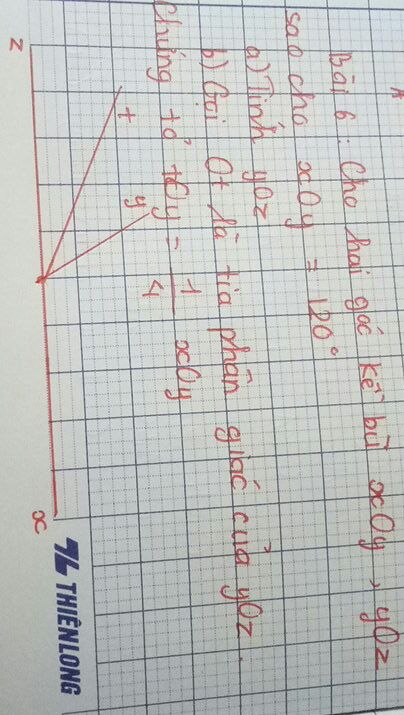 Bài 6: Cho hai góc kề bù xOy, yOz
sao cho xOy = 120°
a) Tính yOz
b) Gọi Ot là tia phân giác của yOz.
Chứng tỏ tOy = 1/4 xOy
z
t
y
x
THIÊN LONG